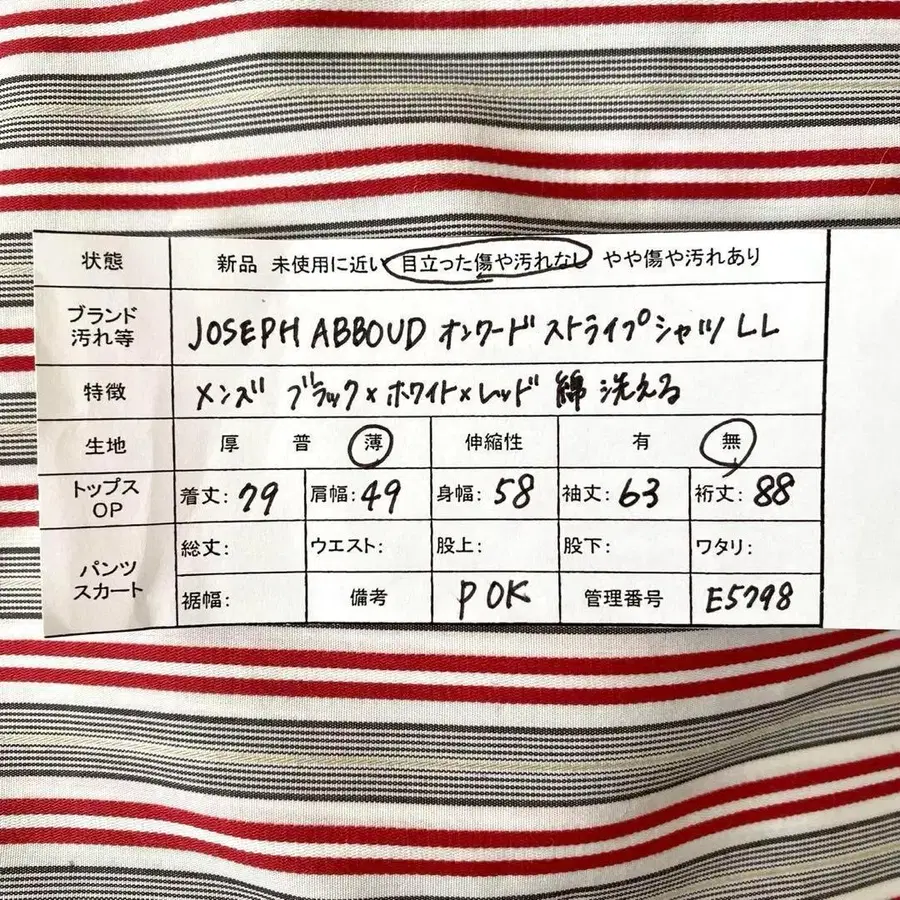 状態 新品 未使用に近い 目立った傷や汚れなし やや傷や汚れあり
ブランド
汚れ等 JOSEPH ABBOUD オンワード ストライプシャツ LL
特徴 メンズ ブラック×ホワイト×レッド 綿 洗える
生地 厚 普 薄 伸縮性 有 無
トップス
OP 着丈: 79 肩幅: 49 身幅: 58 袖丈: 63 裄丈: 88
パンツ
スカート 総丈: ウエスト: 股上: 股下: ワタリ:
裾幅: 備考 P OK 管理番号 E5798